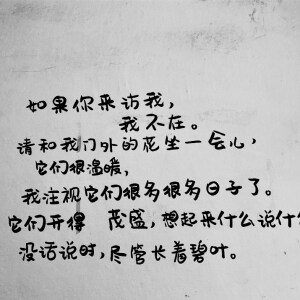 如果你来访我，
我不在。
请和我门外的花坐一会儿，
它们很温暖，
我注视它们很多很多日子了。
它们开得 茂盛，想起来什么说什么
没话说时，尽管长着碧叶。